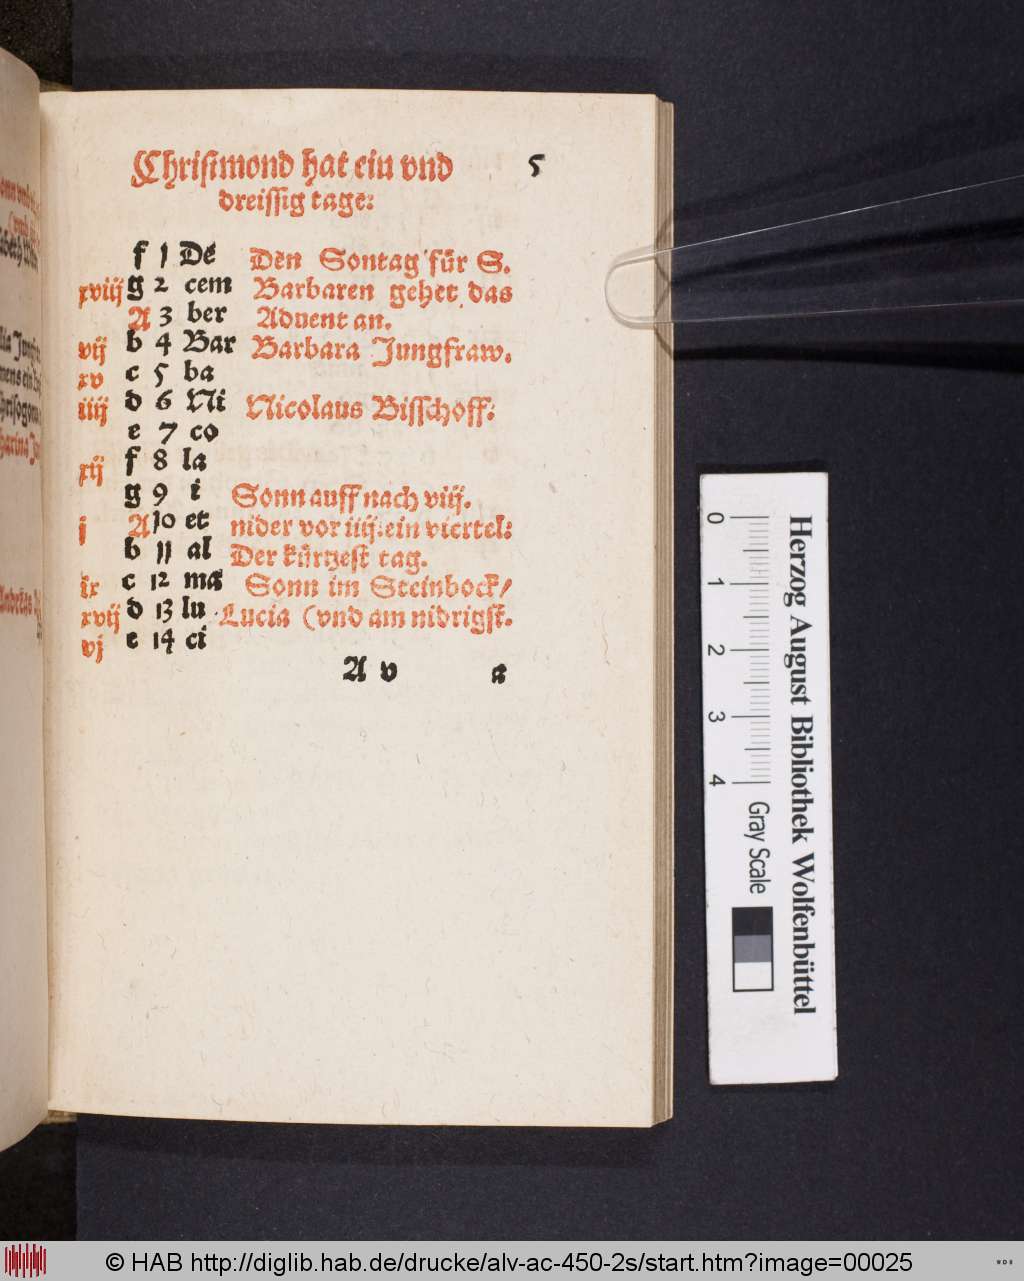 Christmond hat ein vnd 5
dreissig tage:
f 1 De Den Sontag für S.
xviij g 2 cem Barbaren gehet das
A 3 ber Aduent an.
vij b 4 Bar Barbara Jungfraw.
xv c 5 ba
iiij d 6 Ni Nicolaus Bisschoff:
e 7 co
xij f 8 la
g 9 i Sonn auff nach viij.
j A 10 et nider vor iiij. ein viertel:
b 11 al Der kürtzest tag.
ix c 12 ma Sonn im Steinbock/
xvij d 13 lu Lucia (vnd am nidrigst.
vj e 14 ci
A v a
Herzog August Bibliothek Wolfenbüttel
0 1 2 3 4 Gray Scale
© HAB http://diglib.hab.de/drucke/alv-ac-450-2s/start.htm?image=00025